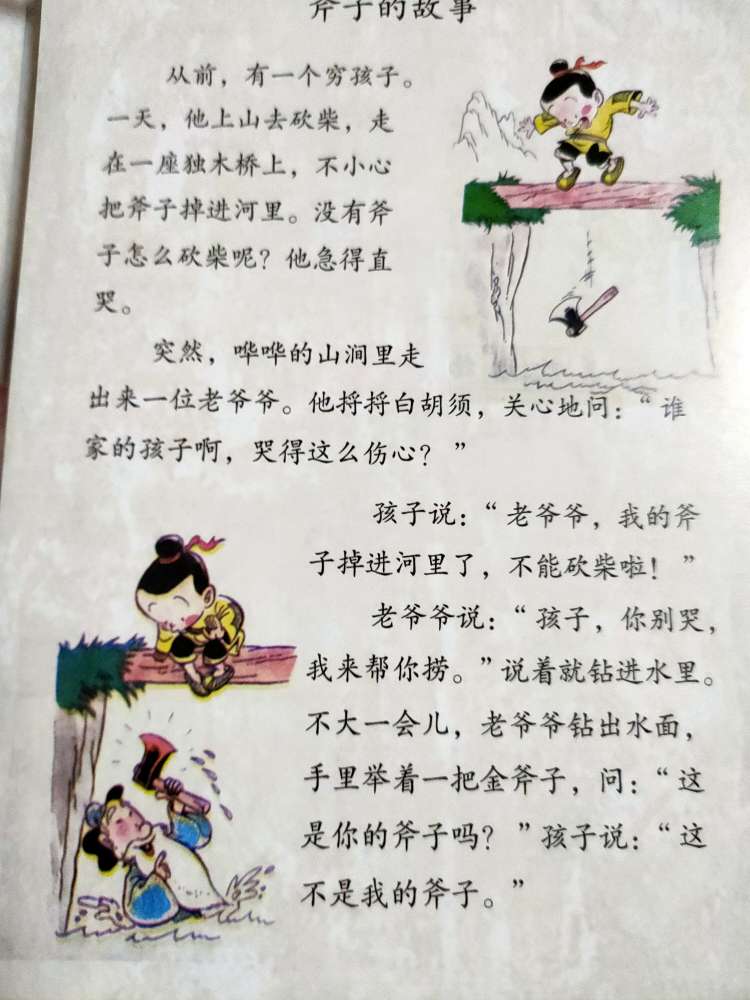 斧子的故事
从前，有一个穷孩子。
一天，他上山去砍柴，走
在一座独木桥上，不小心
把斧子掉进河里。没有斧
子怎么砍柴呢？他急得直
哭。
突然，哗哗的山涧里走
出来一位老爷爷。他捋捋白胡须，关心地问：“谁
家的孩子啊，哭得这么伤心？”
孩子说：“老爷爷，我的斧
子掉进河里了，不能砍柴啦！”
老爷爷说：“孩子，你别哭，
我来帮你捞。”说着就钻进水里。
不大一会儿，老爷爷钻出水面，
手里举着一把金斧子，问：“这
是你的斧子吗？”孩子说：“这
不是我的斧子。”